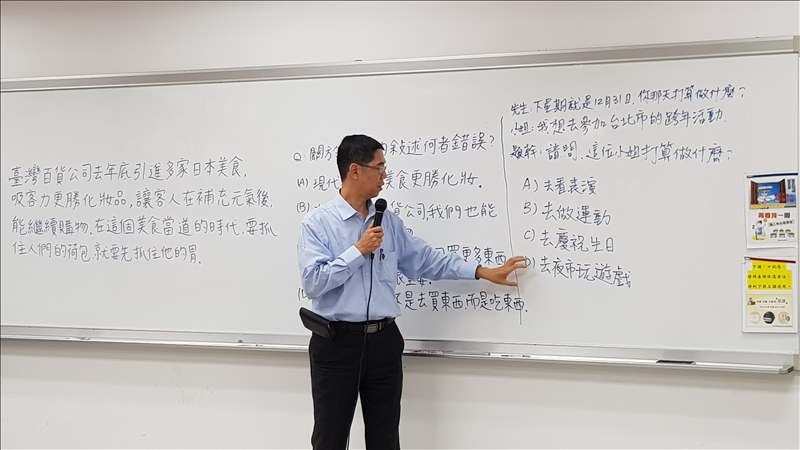 臺灣百貨公司去年底引進多家日本美食,
吸客力更勝化妝品,讓客人在補充元氣後,
能繼續購物.在這個美食當道的時代,要抓
住人們的荷包,就要先抓住他的胃.
Q:關於
的敘述何者錯誤?
(A)現代
美食更勝化妝.
貨公司我們也能
買更多東西
很重要.
不是去買東西,而是吃東西.
先生:下星期就是12月31日,你那天打算做什麼?
小姐:我想去參加台北市的跨年活動.
題幹:請問,這位小姐打算做什麼?
A)去看表演
B)去做運動
C)去慶祝生日
D)去夜市玩遊戲